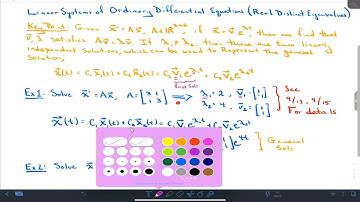 Linear Systems of Ordinary Differential Equations (Real Distinct Eigenvalues)
Key Point: Given x⃗' = Ax⃗, A∈ℝⁿˣⁿ, if x⃗ = v⃗e^λt, then we find that
v⃗, λ satisfies Av⃗ = λv⃗. If λ₁ ≠ λ₂, then there are two linearly
independent solutions, which can be used to represent the general
solution,
x⃗(t) = C₁x⃗₁(t) + C₂x⃗₂(t) = C₁v⃗₁e^λ₁t + C₂v⃗₂e^λ₂t
Ex1: Solve x⃗' = Ax⃗, A = [3 1; 1 3] ⟹ λ₁ = 2, v⃗₁ = λ₂ = 4, v⃗₂ = [1; 1] } See
4/13, 4/15
For details
x⃗(t) = C₁x⃗₁(t) + C₂x⃗₂(t) = C₁v⃗₁e^λ₁t + C₂v⃗₂e^λ₂t
e^4t } General
Soln
Ex2: Solve x⃗'